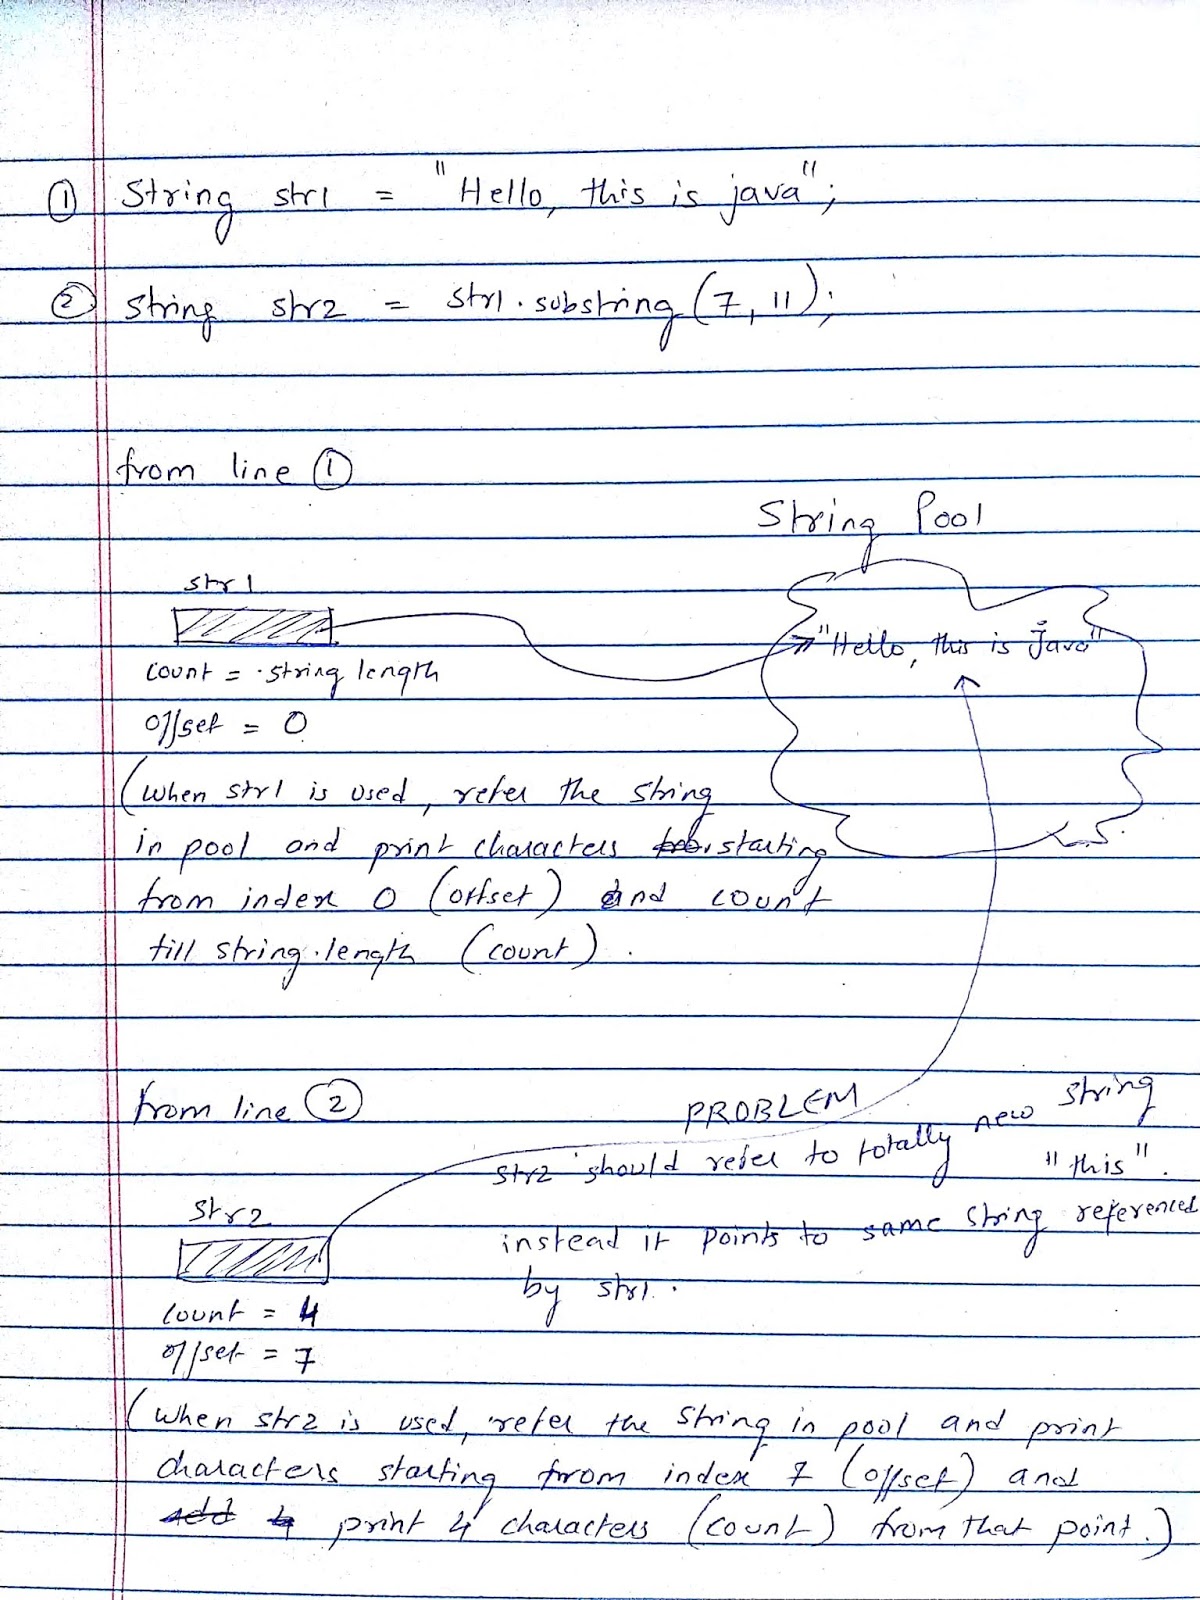 ① String str1 = "Hello, this is java";
② String str2 = str1.substring(7, 11);
from line ①
String Pool
str1
"Hello, this is java"
count = string length
offset = 0
(when str1 is used, refer the string
in pool and print characters starting
from index 0 (offset) and count
till string.length (count).
from line ②
PROBLEM
str2 should refer to totally new string
"this".
str2
instead it points to same string referenced
by str1.
count = 4
offset = 7
(when str2 is used, refer the string in pool and print
characters starting from index 7 (offset) and
add 4 print 4 characters (count) from that point.)